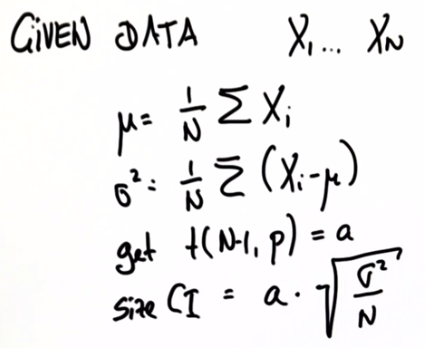 GIVEN DATA X₁... X_N
μ= 1/N Σ Xᵢ
σ²= 1/N Σ (Xᵢ-μ)
get t(N-1, p) = a
size CI = a · √(σ²/N)